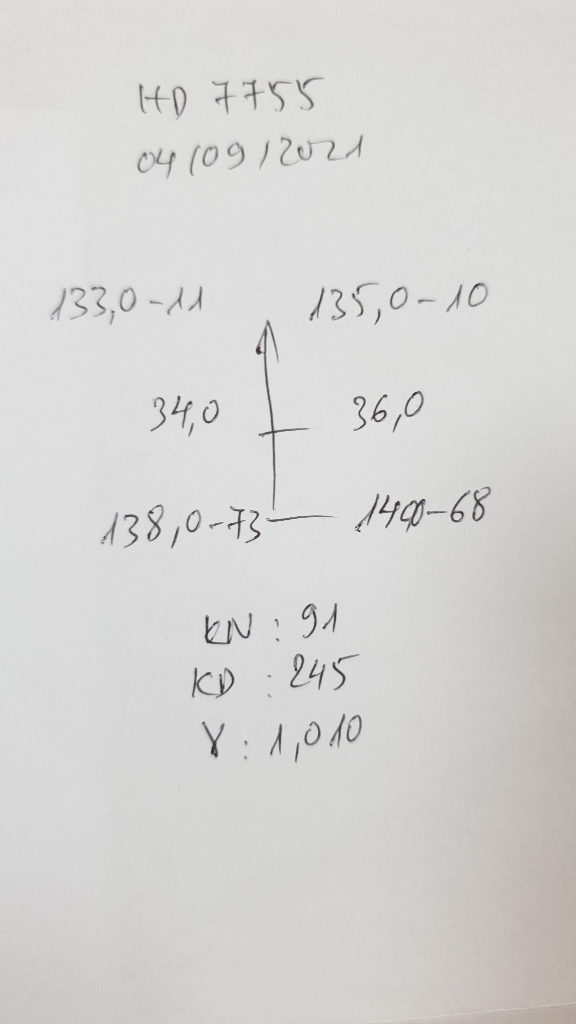 HD 7755
04/09/2021
133,0-11 135,0-10
34,0 36,0
138,0-73 140,0-68
KN : 91
KD : 245
γ : 1,010